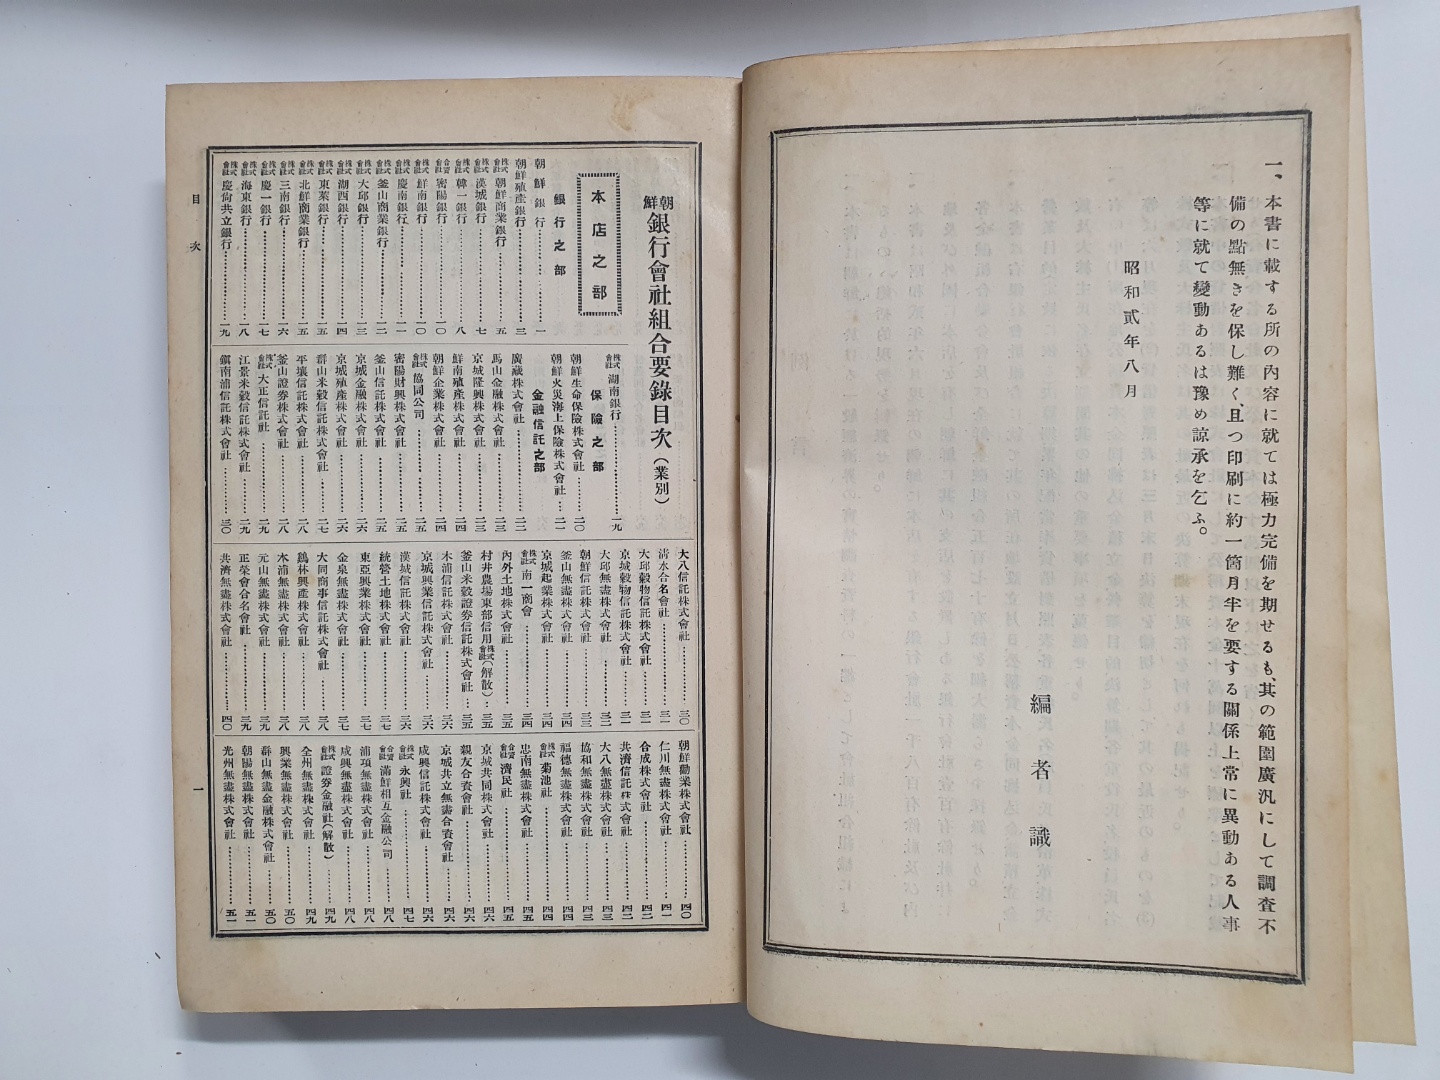 一、本書に載する所の内容に就ては極力完備を期せるも、其の範圍廣汎にして調査不
備の點無きを保し難く、且つ印刷に約一箇月半を要する關係上常に異動ある人事
等に就て變動あるは豫め諒承を乞ふ。
昭和貳年八月
編者識
朝鮮銀行會社組合要錄目次(業別)
本店之部
銀行之部
朝鮮銀行…一
朝鮮殖產銀行…三
株式會社朝鮮商業銀行…五
株式會社漢城銀行…七
株式會社韓一銀行…八
合資會社密陽銀行…一〇
株式會社鮮南銀行…一〇
株式會社慶南銀行…一一
株式會社釜山商業銀行…一二
株式會社大邱銀行…一三
株式會社湖西銀行…一四
株式會社東萊銀行…一五
株式會社北鮮商業銀行…一五
株式會社三南銀行…一六
株式會社慶一銀行…一七
株式會社海東銀行…一八
株式會社慶尙共立銀行…一九
株式會社湖南銀行…一九
保險之部
朝鮮生命保險株式會社…二〇
朝鮮火災海上保險株式會社…二一
金融信託之部
廣藏株式會社…二二
馬山金融株式會社…二三
京城隆興株式會社…二三
鮮南殖產株式會社…二四
朝鮮企業株式會社…二四
株式會社協同公司…二五
密陽財興株式會社…二五
釜山信託株式會社…二五
京城金融株式會社…二六
京城殖產株式會社…二六
群山米穀信託株式會社…二七
平壤信託株式會社…二八
釜山證券株式會社…二八
株式會社大正信託社…二九
江景米穀信託株式會社…二九
鎭南浦信託株式會社…三〇
大八信託株式會社…三〇
淸水合名會社…三一
大邱穀物信託株式會社…三一
京城穀物信託株式會社…三一
大邱無盡株式會社…三二
朝鮮信託株式會社…三三
釜山無盡株式會社…三四
京城起業株式會社…三四
株式會社南一商會…三四
內外土地株式會社…三五
村井農場東部信用株式會社(解散)…三五
釜山米穀證券信託株式會社…三五
木浦信託株式會社…三六
京城興業信託株式會社…三六
漢城信託株式會社…三六
統營土地株式會社…三七
東亞興業株式會社…三七
金泉無盡株式會社…三七
大同商事信託株式會社…三八
鷄林興產株式會社…三八
木浦無盡株式會社…三八
元山無盡株式會社…三九
正榮會合名會社…三九
共濟無盡株式會社…四〇
朝鮮勸業株式會社…四〇
仁川無盡株式會社…四一
合成株式會社…四二
共濟信託株式會社…四二
大八無盡株式會社…四三
協和無盡株式會社…四三
福德無盡株式會社…四四
株式會社菊池社…四四
忠南無盡株式會社…四五
合資會社濟民社…四五
京城共同株式會社…四六
親友合資會社…四六
京城共立無盡合資會社…四六
咸興信託株式會社…四六
株式會社永興社…四七
合資會社滿鮮相互金融公司…四八
浦項無盡株式會社…四八
咸興無盡株式會社…四八
株式會社證券金融社(解散)…四九
全州無盡株式會社…四九
興業無盡株式會社…五〇
群山無盡金融株式會社…五〇
朝陽無盡株式會社…五一
光州無盡株式會社…五一
目次
一